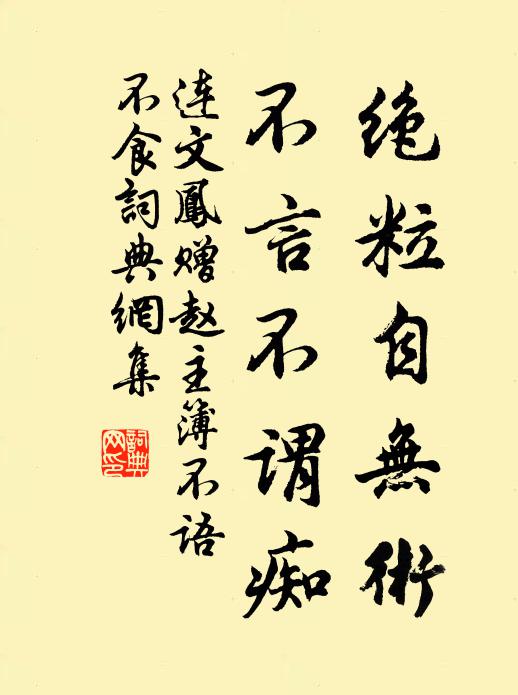 绝粒自無術
不言不谓痴
连文鳳赠赵主簿不语
不食詞典網集
詞典網印